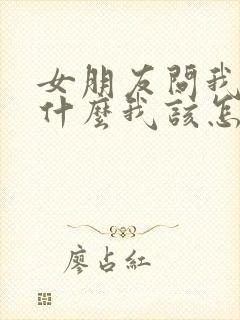 女朋友問我
什麼我該怎
廖占紅